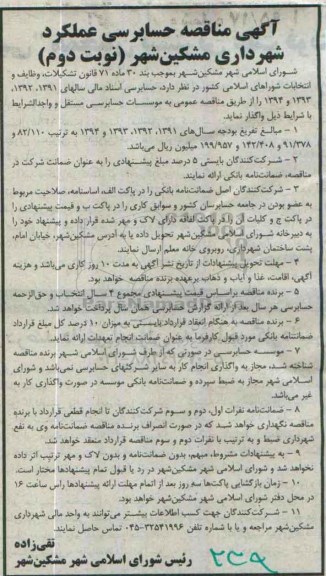 آگهی مناقصه حسابرسی عملکرد
شهرداری مشکین‌شهر (نوبت دوم)
شـورای اسلامی شهر مشکین‌شـهر بموجب بند ۳۰ ماده ۷۱ قانون تشکیلات، وظایف و
انتخابات شوراهای اسلامی کشور در نظر دارد، حسابرسی اسناد مالی سالهای ۱۳۹۱، ۱۳۹۲،
۱۳۹۳ و ۱۳۹۴ را از طریق مناقصه عمومی به موسسـات حسابرسـی مستقل و واجدالشرایط
با شرایط ذیل واگذار نماید.
۱ – مبالـغ تفریغ بودجه سـال‌های ۱۳۹۱، ۱۳۹۲، ۱۳۹۳ و ۱۳۹۴ به ترتیب ۸۲/۱۱۰ و
۹۱/۳۷۸ و ۱۴۲/۴۰۸ و ۱۹۹/۹۵۷ میلیون ریال می‌باشد.
۲ – شـرکت‌کنندگان بایستی ۵ درصد مبلغ پیشنهادی را به عنوان ضمانت شرکت در
مناقصه، ضمانت‌نامه بانکی ارائه نمایند.
۳ – شرکت‌کنندگان اصل ضمانت‌نامه بانکی را در پاکت الف، اساسنامه، صلاحیت مربوط
به عضو بودن در جامعه حسابرسان کشور و سوابق کاری را در پاکت ب و قیمت پیشنهادی را
در پاکت ج و کلیات آن را در پاکت لفافه دارای لاک و مهر شده قرار داده و پیشنهاد خود را
به دبیرخانه شورای اسلامی مشکین‌شهر تحویل داده یا به آدرس مشکین‌شهر، خیابان امام،
پشت ساختمان شهرداری، روبروی خانه معلم ارسال نمایند.
۴ – مهلت تحویل پیشنهادات از تاریخ نشر آگهی به مدت ۱۰ روز کاری می‌باشد و هزینه
آگهی، اقامت، غذا و ایاب و ذهاب برعهده برنده مناقصه خواهد بود.
۵ – برنده مناقصه براساس قیمت پیشنهادی مجموع ۴ سـال انتخاب و حق‌الزحمه
حسابرسی هر سال بعد از ارائه گزارش حسابرسی همان سال پرداخت خواهد شد.
۶ – برنده مناقصه به هنگام انعقاد قرارداد بایستی به میزان ۱۰ درصد کل مبلغ قرارداد
ضمانتنامه بانکی مورد قبول کارفرما به عنوان ضمانت انجام تعهدات ارائه نماید.
۷ – موسسه حسابرسی در صورتی که از طرف شورای اسلامی شهر برنده مناقصه
شناخته شده، مجاز به واگذاری انجام کار به سایر شرکتهای حسابرسی نمی‌باشد و شورای
اسلامی شهر مجاز به ضبط سپرده و ضمانت‌نامه بانکی موسسه در صورت واگذاری کار به
غیر می‌باشد.
۸ – ضمانت‌نامه نفرات اول، دوم و سـوم شرکت‌کنندگان تا انجام قطعی قرارداد با برنده
مناقصه نگهداری خواهد شد که در صورت انصراف برنده مناقصه ضمانت‌نامه وی به نفع
شهرداری ضبط و به ترتیب با نفرات دوم و سوم مناقصه قرارداد منعقد خواهد شد.
۹ – به پیشنهادات مشروط، مبهم، بدون ضمانت‌نامه و بدون لاک و مهر ترتیب اثر داده
نخواهد شد و شورای اسلامی شهر مشکین‌شهر در رد یا قبول تمام پیشنهادها مختار است.
۱۰ – زمان بازگشایی پاکت‌ها سـه روز بعد از اتمام مهلت ارائه پیشنهادها راس ساعت ۱۶
در محل دفتر شورای اسلامی شهر مشکین‌شهر خواهد بود.
۱۱ – شـرکت‌کنندگان جهت کسب اطلاعات بیشـتر می‌توانند به واحد مالی شهرداری
مشکین‌شهر مراجعه و یا با شماره تلفن ۳۲۵۴۱۹۹۶-۰۴۵ تماس حاصل نمایند.
تقی‌زاده
رئیس شورای اسلامی شهر مشکین‌شهر